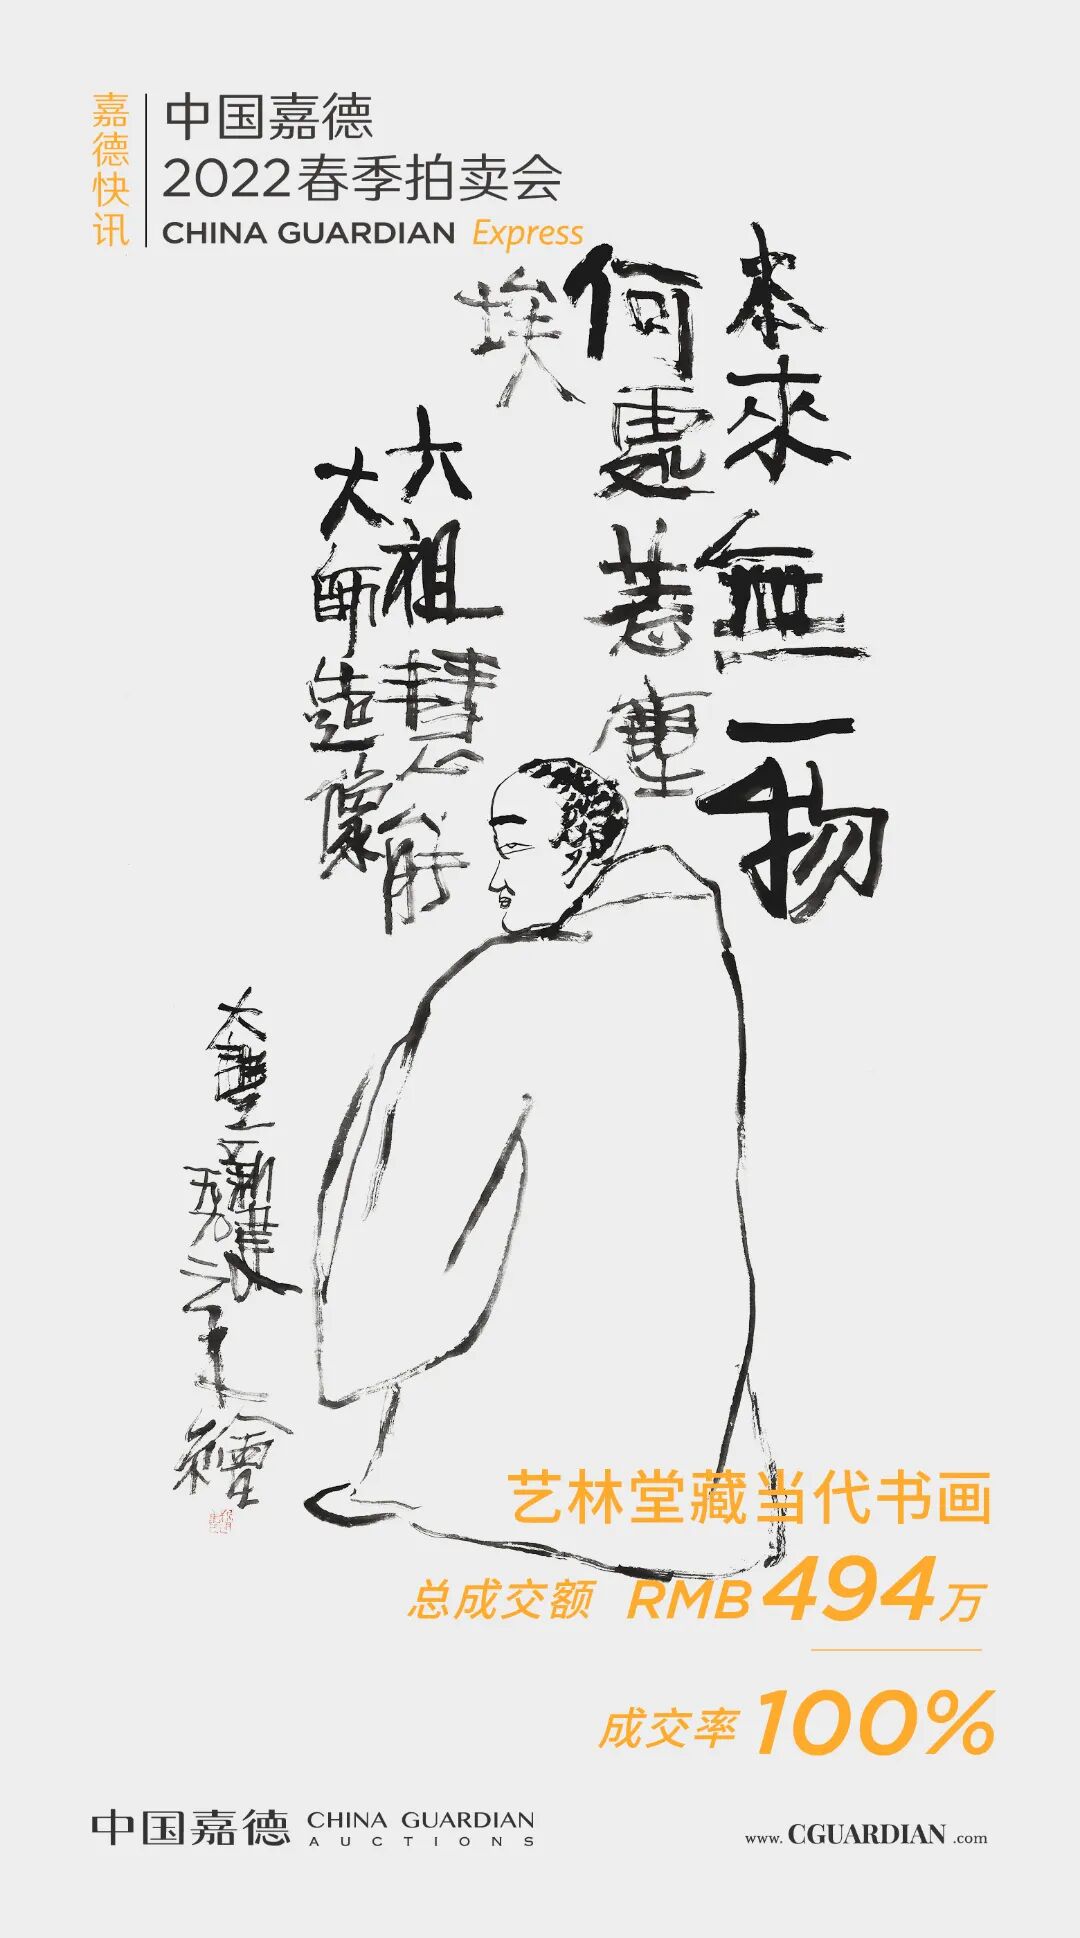 嘉德快讯
中国嘉德
2022春季拍卖会
CHINA GUARDIAN Express
本來無一物
何處惹塵
埃
六祖慧能
大師造像
艺林堂藏当代书画
总成交额 RMB 494万
成交率 100%
中国嘉德 CHINA GUARDIAN
AUCTIONS
www.CGUARDIAN.com